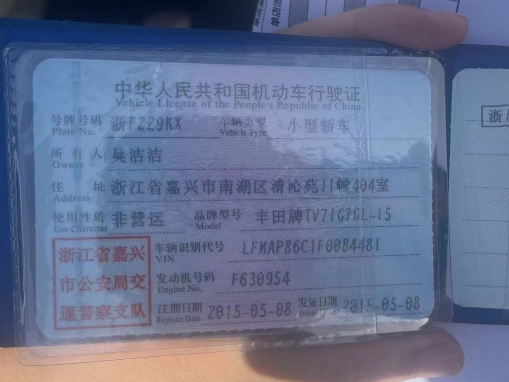 中华人民共和国机动车行驶证
Vehicle License of the People's Republic of China
号牌号码 浙F229KX 车辆类型 小型轿车
Plate No. Vehicle Type
所有人 莫洁洁
Owner
住址 浙江省嘉兴市南湖区清沁苑11幢404室
Address
使用性质 非营运 品牌型号 丰田牌TV7167GL-i5
Use Character Model
浙江省嘉兴
市公安局交
通警察支队
车辆识别代号 LFMAP86C1F0084481
VIN
发动机号码 F630954
Engine No.
注册日期 2015-05-08 发证日期 2015-05-08
Register Date Issue
浙